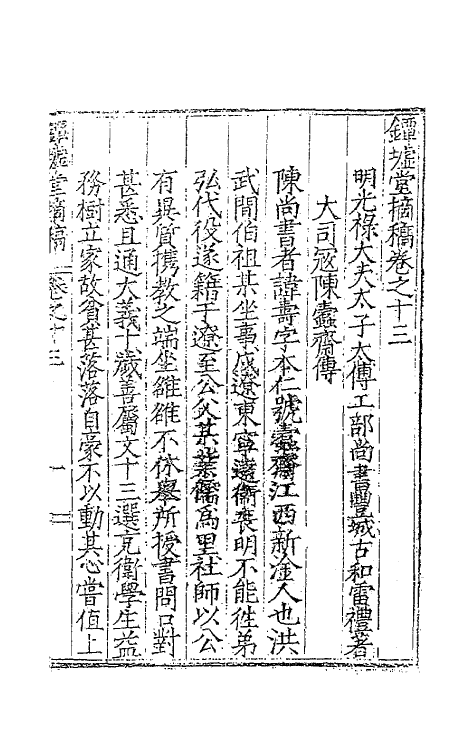 鐔墟堂摘稿卷之十三
明光祿大夫太子太傅工部尚書豐城古和雷禮著
大司寇陳蠧齋傳
陳尚書者諱壽字本仁號蠧齋江西新淦人也洪
武間伯祖某坐事戍遼東寧遠衛喪明不能徃弟
弘代役遂籍于遼至公父某業儒爲里社師以公
有異質携教之端坐雒雒不休舉所授書問口對
甚悉且通大義十歲善屬文十三選充衛學生益
務樹立家故貧甚落落自豪不以動其心嘗值上
鐔墟堂摘稿 卷之十三 一